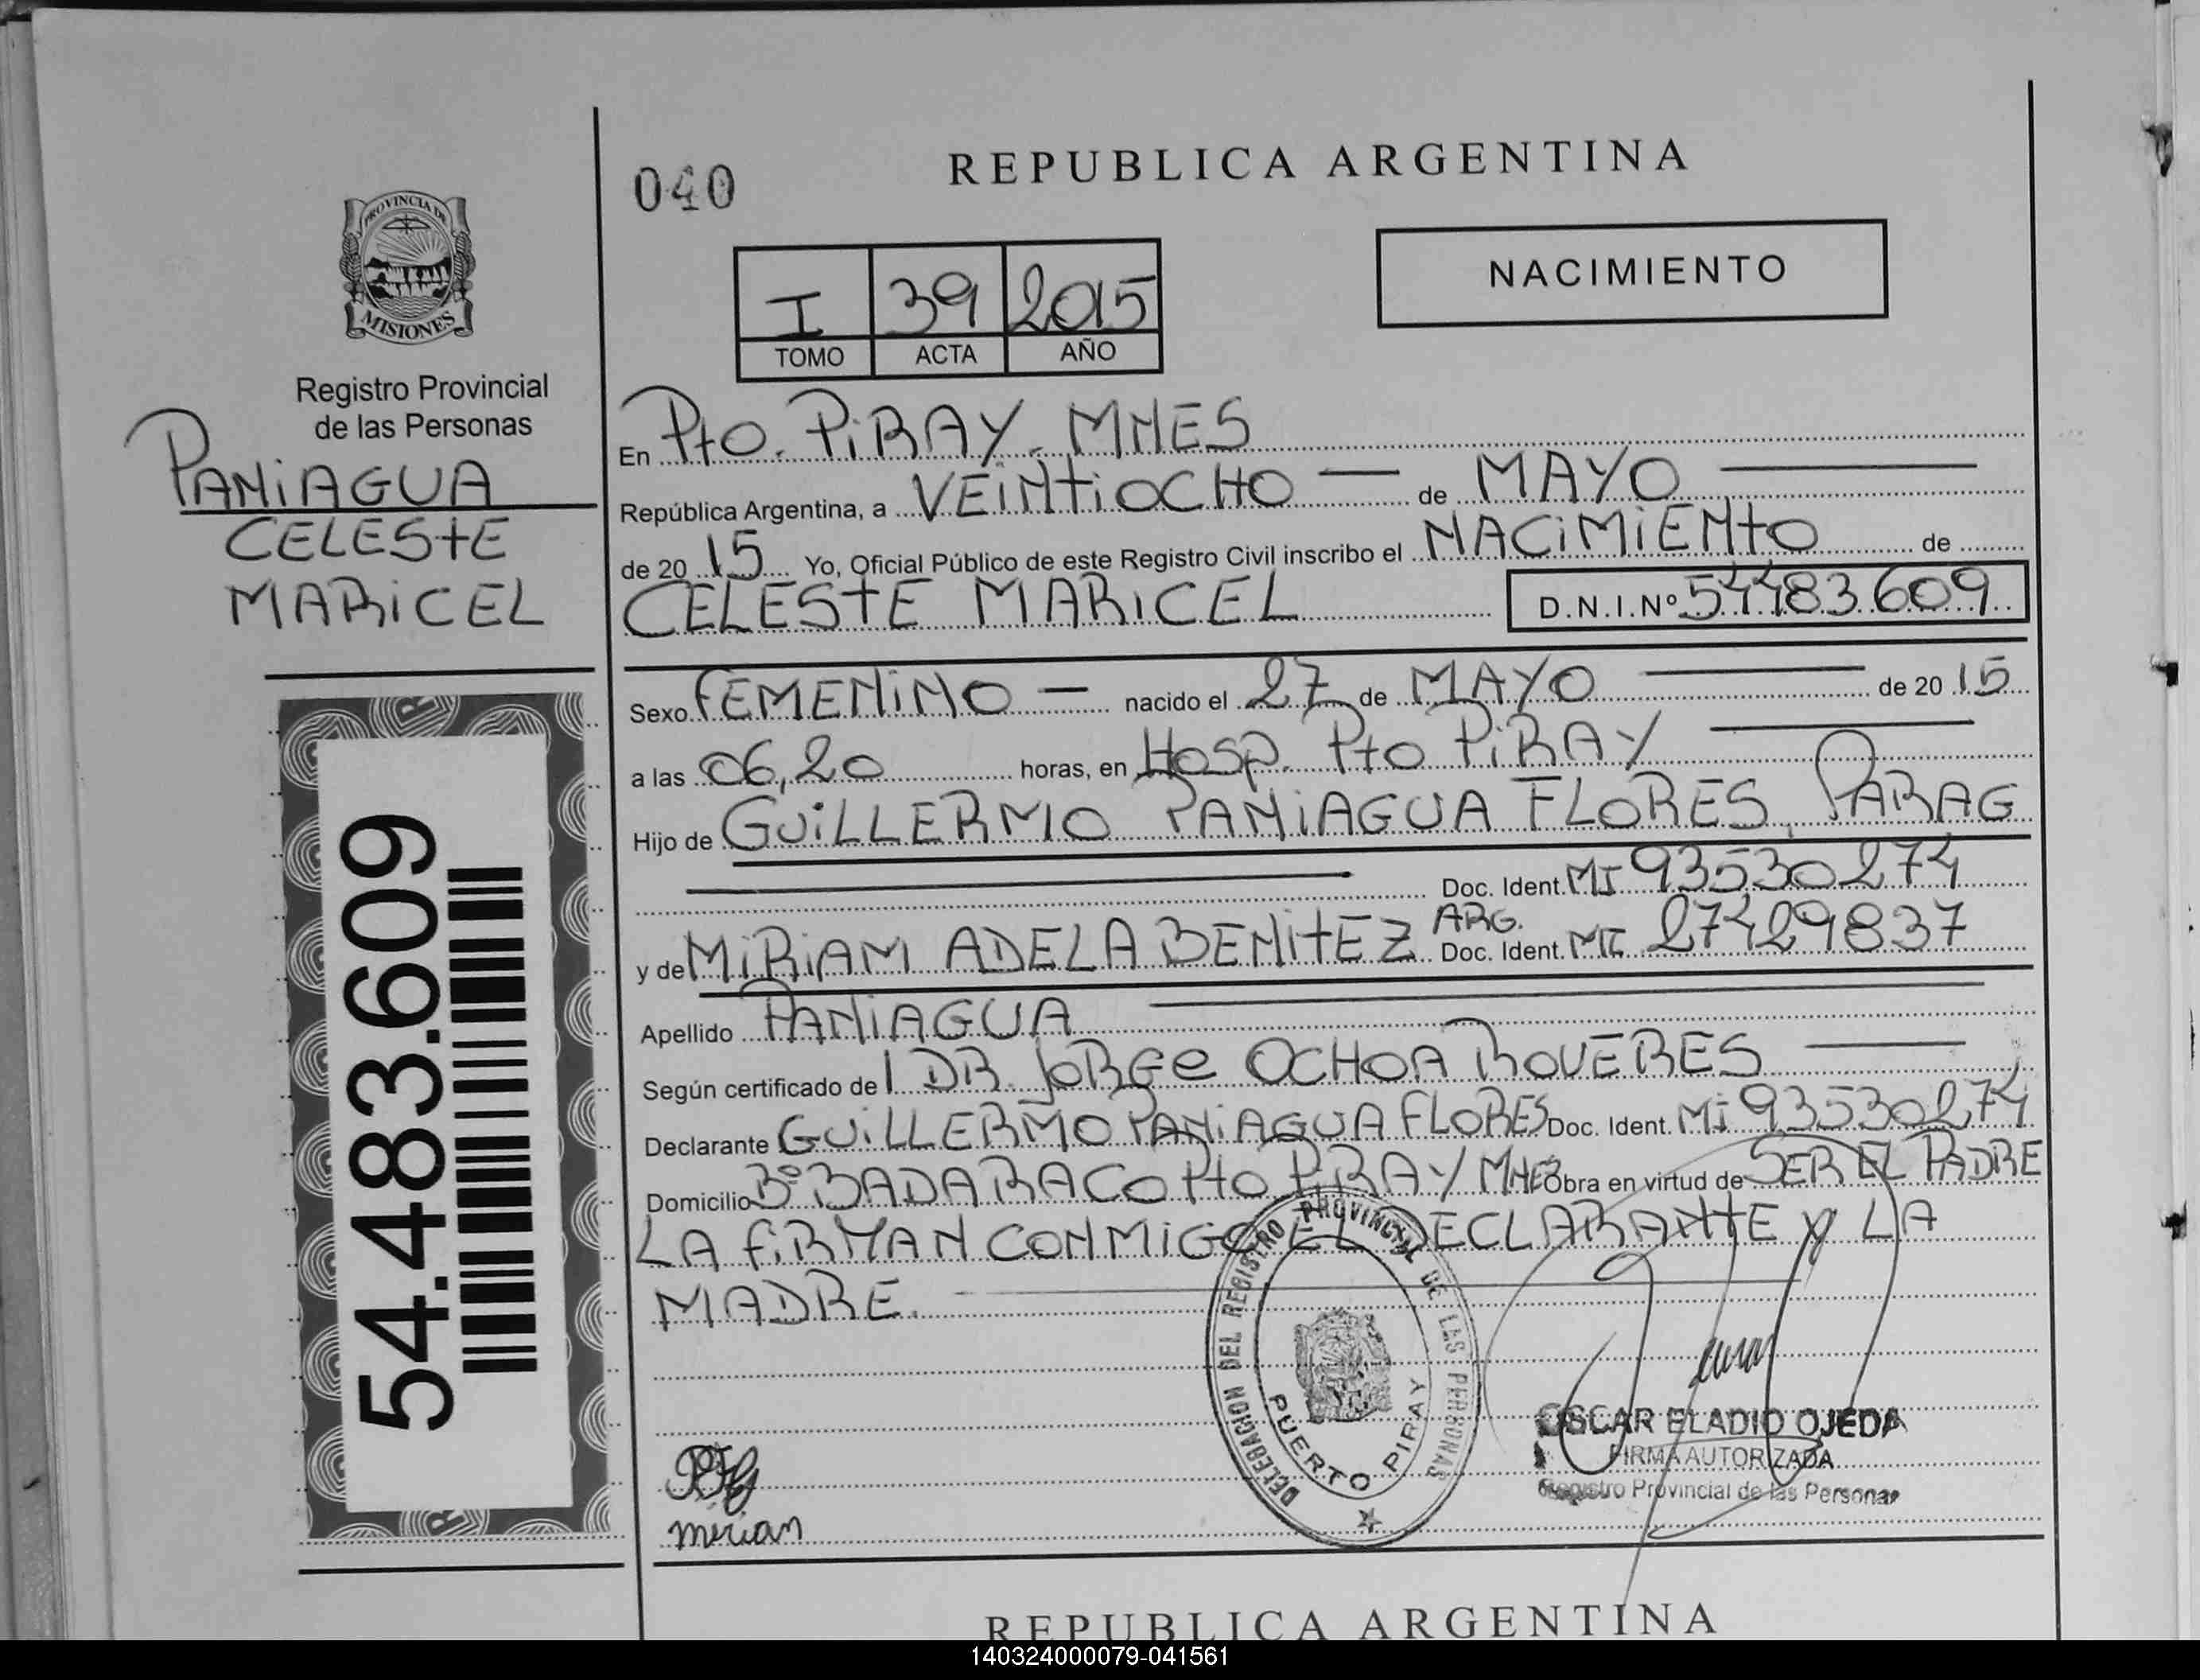 PROVINCIA DE
MISIONES
Registro Provincial
de las Personas
PANIAGUA
CELESTE
MARICEL
54.483.609
040
REPUBLICA ARGENTINA
NACIMIENTO
I 39 2015
TOMO ACTA AÑO
En Pto. PiRAY. MNES
República Argentina, a VEiNtiOCHO — de MAYO
de 20 15 Yo, Oficial Público de este Registro Civil inscribo el NACiMiENtO de
CELEStE MARiCEL D.N.I.Nº 54483.609
Sexo FEMENiNO — nacido el 27 de MAYO de 20 15
a las 06,20 horas, en Hosp. Pto PiRAY
Hijo de GUiLLERMO PANiAGUA FLORES, PARAG
Doc. Ident. MI 93530274
ARG.
y de MiRiAM ADELA BENitEZ Doc. Ident. MI 27429837
Apellido PANiAGUA
Según certificado de l DR. JORGE OCHOA ROVERES
Declarante GUiLLERMO PANiAGUA FLORES Doc. Ident. Mi 93530274
Domicilio Bº BADARACO Pto PiRAY MNES Obra en virtud de SER EL PADRE
LA FiRMAN CONMiGO EL DECLARANtE y LA
MADRE.
DELEGACION DEL REGISTRO PROVINCIAL DE LAS PERSONAS
PUERTO PIRAY
OSCAR ELADIO OJEDA
FIRMA AUTORIZADA
Registro Provincial de las Personas
mirian
REPUBLICA ARGENTINA
140324000079-041561